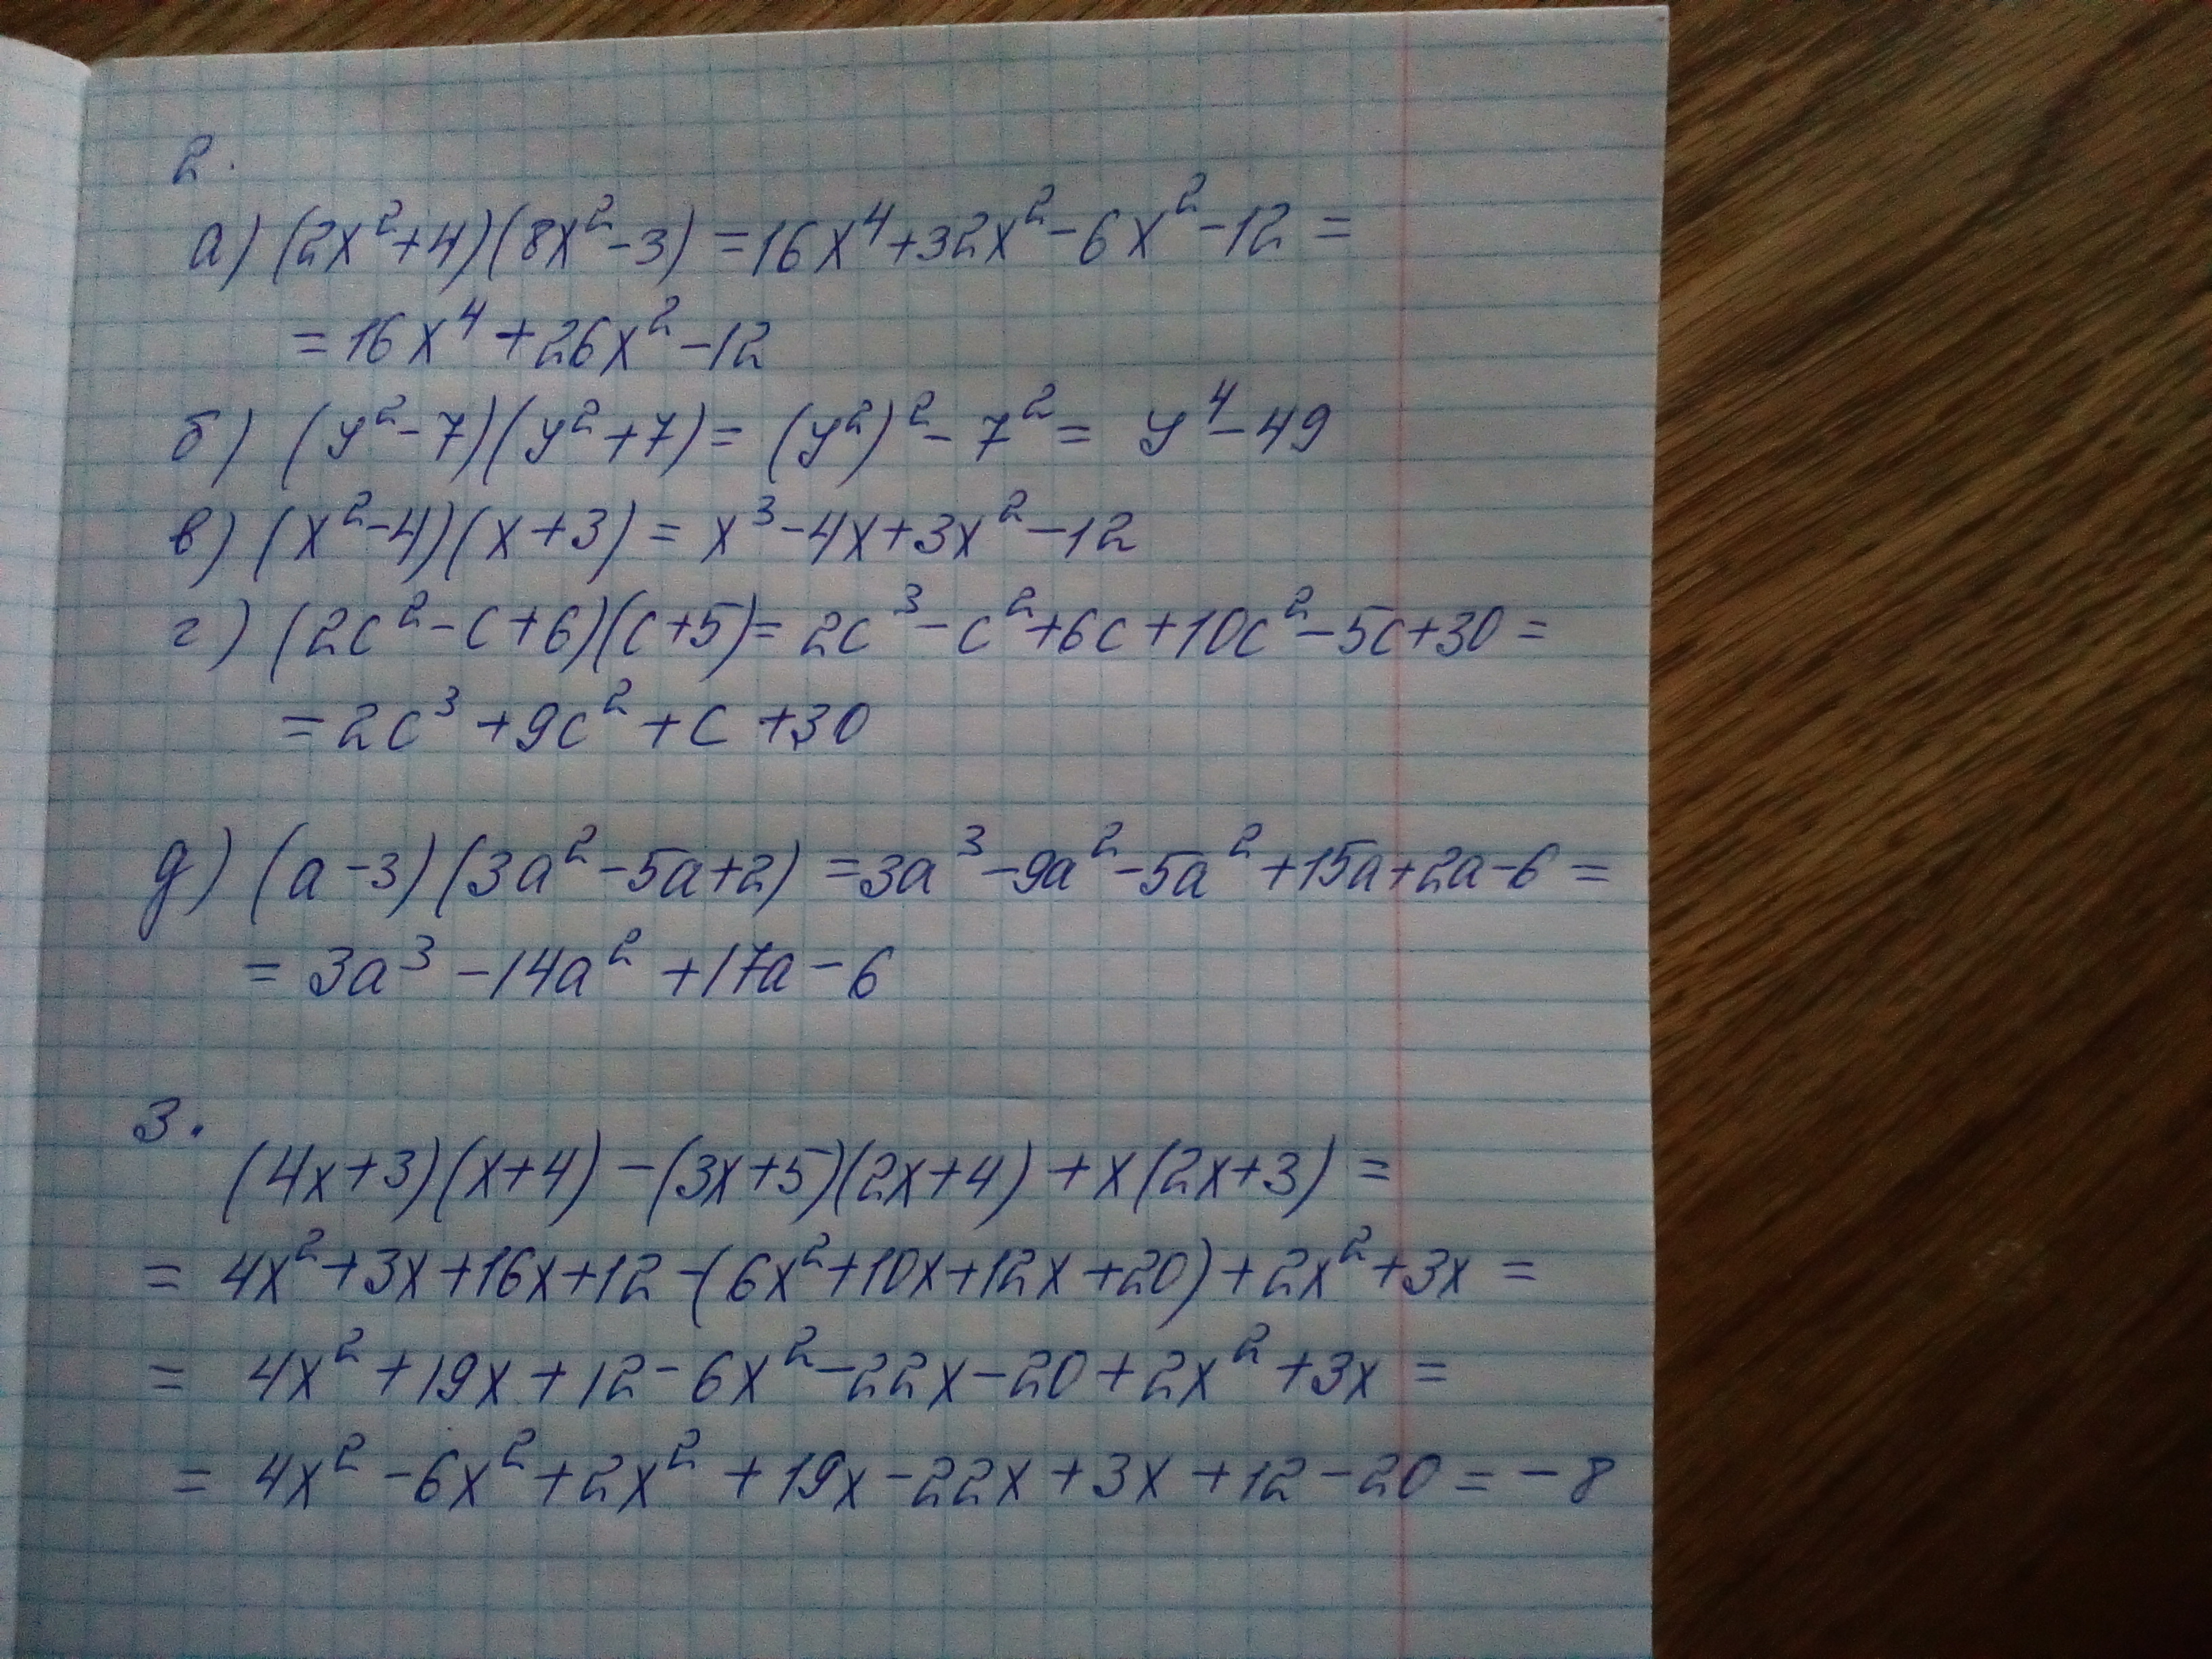 2.
а) (2x²+4)(8x²-3) = 16x⁴+32x²-6x²-12 =
= 16x⁴ + 26x² - 12
б) (y²-7)(y²+7) = (y²)² - 7² = y⁴-49
в) (x²-4)(x+3) = x³-4x+3x²-12
г) (2c²-c+6)(c+5) = 2c³-c²+6c+10c²-5c+30 =
= 2c³ + 9c² + c + 30
д) (a-3)(3a²-5a+2) = 3a³-9a²-5a²+15a+2a-6 =
= 3a³ - 14a² + 17a - 6
3.
(4x+3)(x+4) - (3x+5)(2x+4) + x(2x+3) =
= 4x²+3x+16x+12-(6x²+10x+12x+20)+2x²+3x =
= 4x²+19x+12-6x²-22x-20+2x²+3x =
= 4x²-6x²+2x²+19x-22x+3x+12-20 = -8